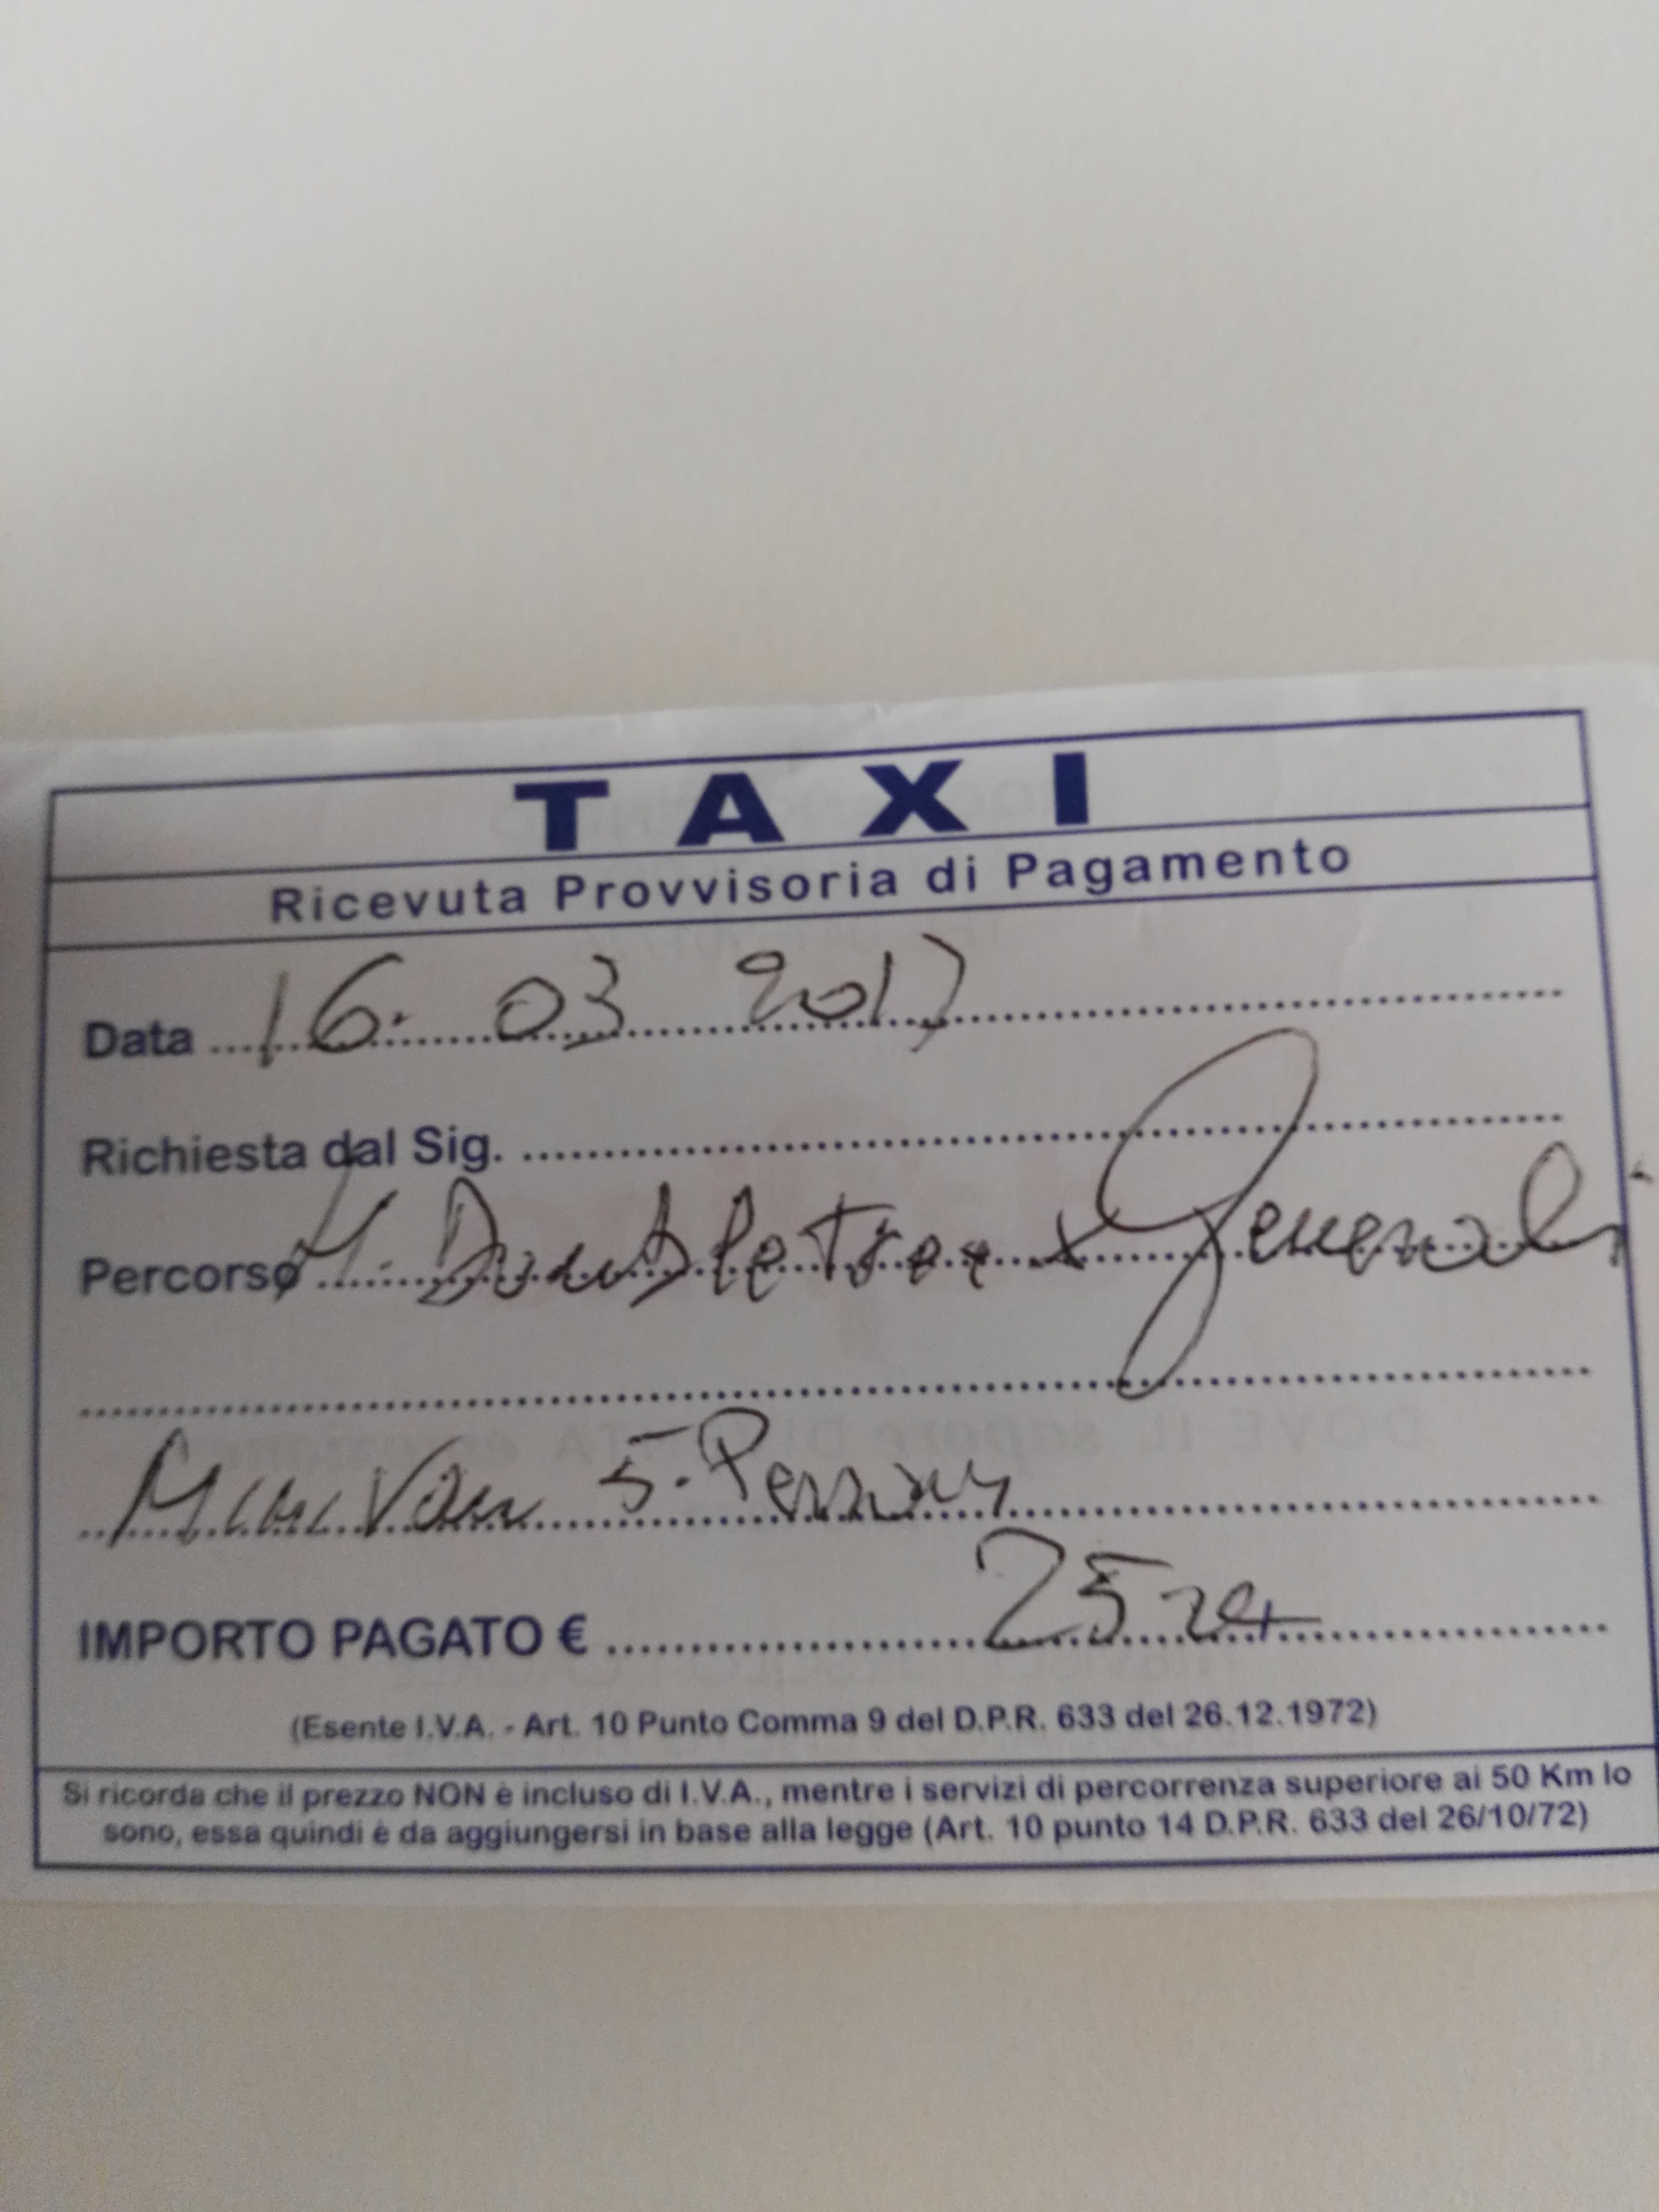 TAXI
Ricevuta Provvisoria di Pagamento
Data 16. 03 2017
Richiesta dal Sig.
Percorso H. DoubleTree x Generali
MiniVan 5. Person
IMPORTO PAGATO € 25
(Esente I.V.A. - Art. 10 Punto Comma 9 del D.P.R. 633 del 26.12.1972)
Si ricorda che il prezzo NON è incluso di I.V.A., mentre i servizi di percorrenza superiore ai 50 Km lo
sono, essa quindi è da aggiungersi in base alla legge (Art. 10 punto 14 D.P.R. 633 del 26/10/72)